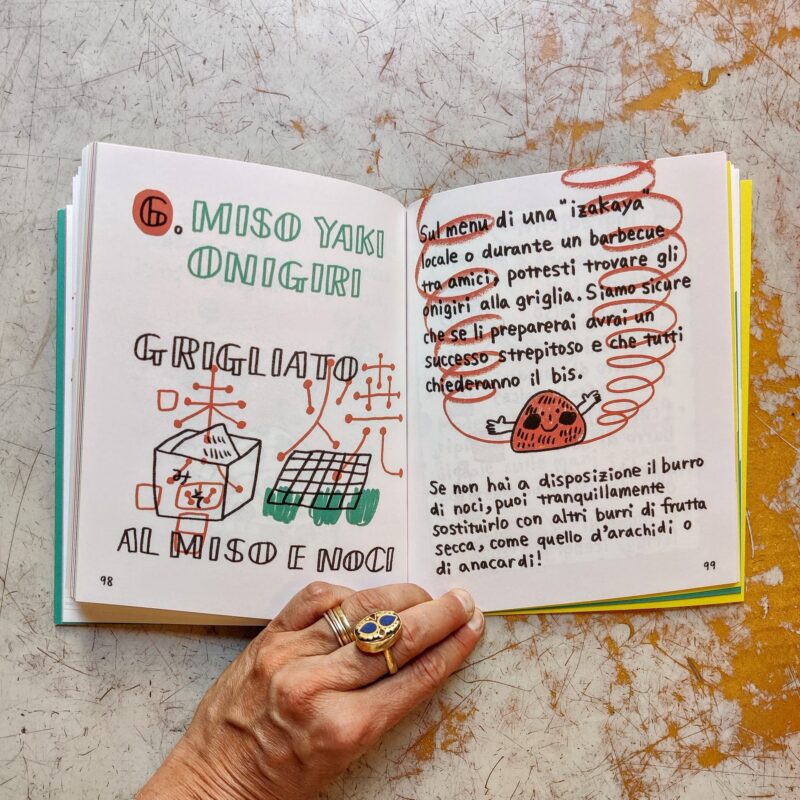 6. MISO YAKI
ONIGIRI
GRIGLIATO
味噌 焼
みそ
AL MISO E NOCI
98
Sul menu di una "izakaya"
locale o durante un barbecue
tra amici, potresti trovare gli
onigiri alla griglia. Siamo sicure
che se li preparerai avrai un
successo strepitoso e che tutti
chiederanno il bis.
Se non hai a disposizione il burro
di noci, puoi tranquillamente
sostituirlo con altri burri di frutta
secca, come quello d'arachidi o
di anacardi!
99